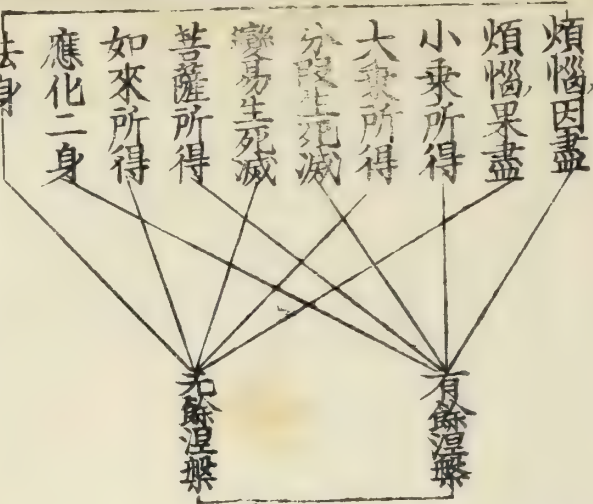 煩惱因盡
煩惱果盡
小乗所得
大乗所得
分段生死滅
變易生死滅
菩薩所得
如來所得
應化二身
法身
有餘涅槃
无餘涅槃